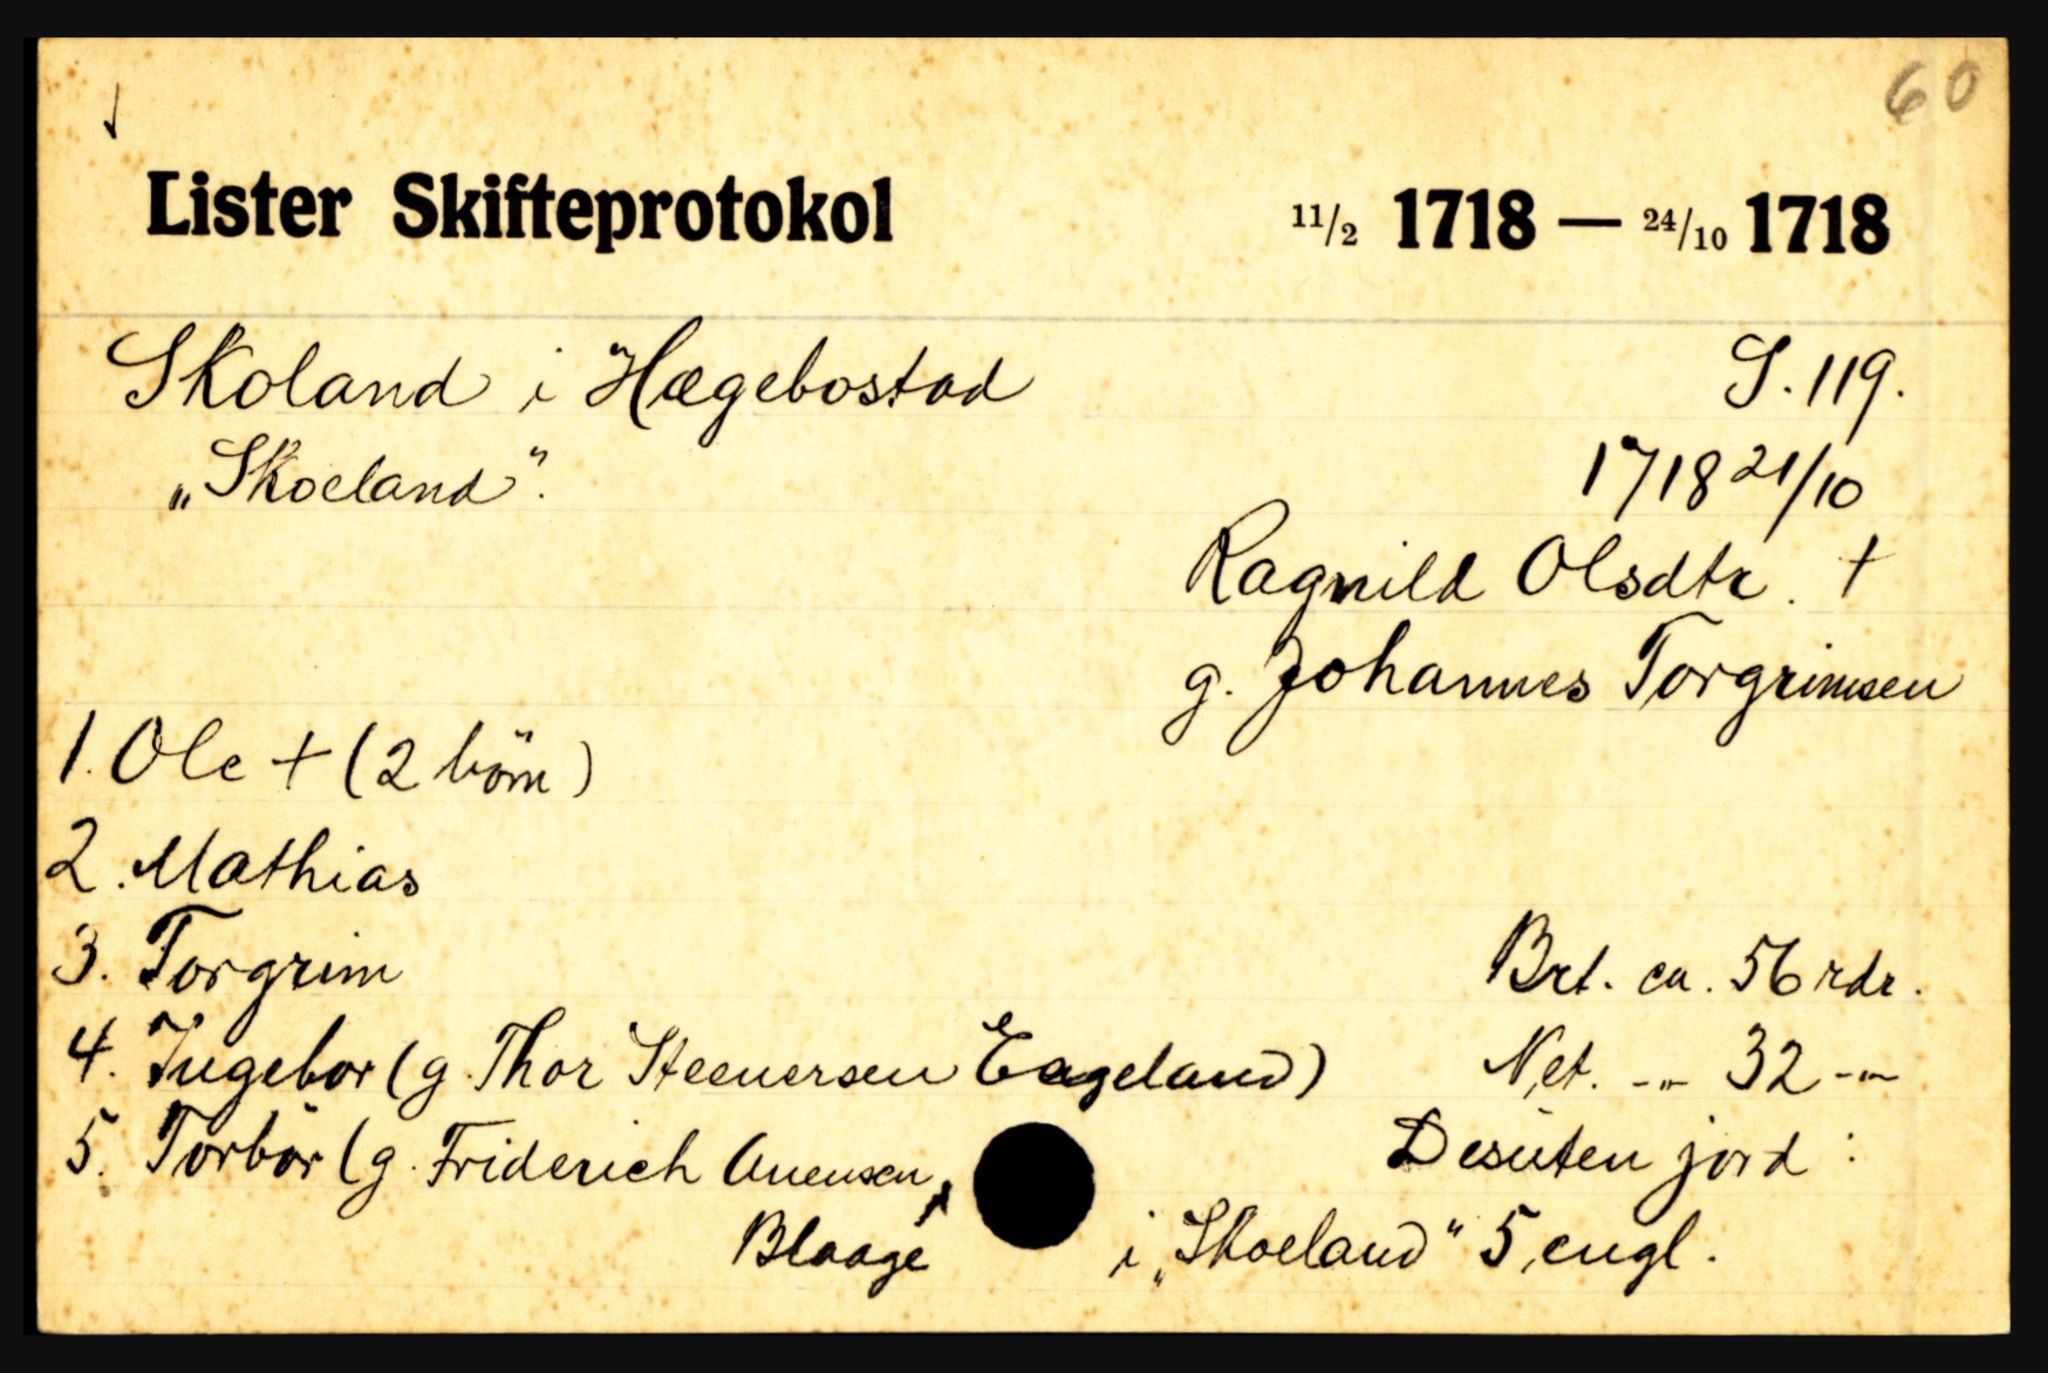 60
Lister Skifteprotokol 11/2 1718 — 24/10 1718
Skoland i Hægebostad S. 119.
„Skoeland". 1718 21/10
Ragnild Olsdtr. +
g. Johannes Torgrimsen
1. Ole + (2 börn)
2. Mathias
3. Torgrim Brt. ca. 56 rdr.
4. Ingebor (g. Thor Steenersen Eageland) Net. -"- 32 -"-
5. Torbör (g. Friderich Anensen, Desuten jord :
Blaage i „Skoeland" 5, engl.